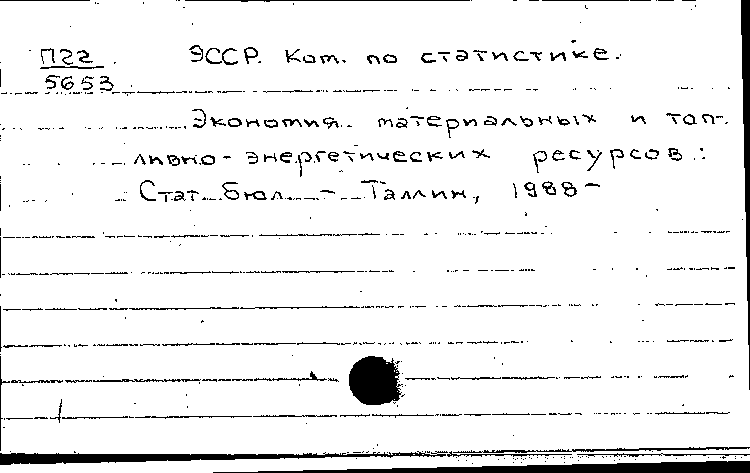 П22 ЭССР. Ком. по статистике.
5653
Экономия материальных и топ-
ливно-энергетических ресурсов:
Стат. бюл. - Таллин, 1988-